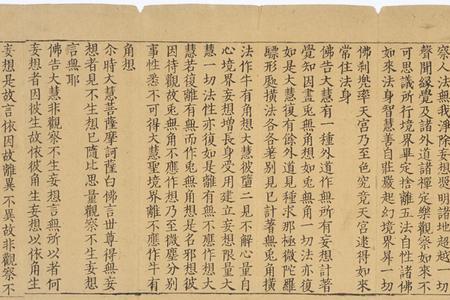 察人法無我淨除妄想照明諸地超越一切
聲聞緣覺及諸外道諸禪定樂觀察如來不
可思議所行境界畢定捨離五法自性諸佛
如來法身智慧善自莊嚴起幻境界昇一切
佛刹兜率天宮乃至色究竟天宮逮得如來
常住法身
佛告大慧有一種外道作無所有妄想計著
覺知因盡兔無角想如兔無角一切法亦復
如是大慧復有餘外道見種求那極微陀羅
驃形處橫法各各差別見已計著無兔角橫
法作牛有角想大慧彼墮二見不解心量自
心境界妄想增長身受用建立妄想限量大
慧一切法性亦復如是離有無不應作想大
慧若復離有無而作兔無角想是名邪想彼
因待觀故兔無角不應作想乃至微塵分別
事性悉不可得大慧聖境界離不應作牛有
角想
尒時大慧菩薩摩訶薩白佛言世尊得無妄
想者見不生想已隨比思量觀察不生妄想
言無耶
佛告大慧非觀察不生妄想言無所以者何
妄想者因彼生故依彼角生妄想以依角生
妄想是故言依因故離異不異故非觀察不